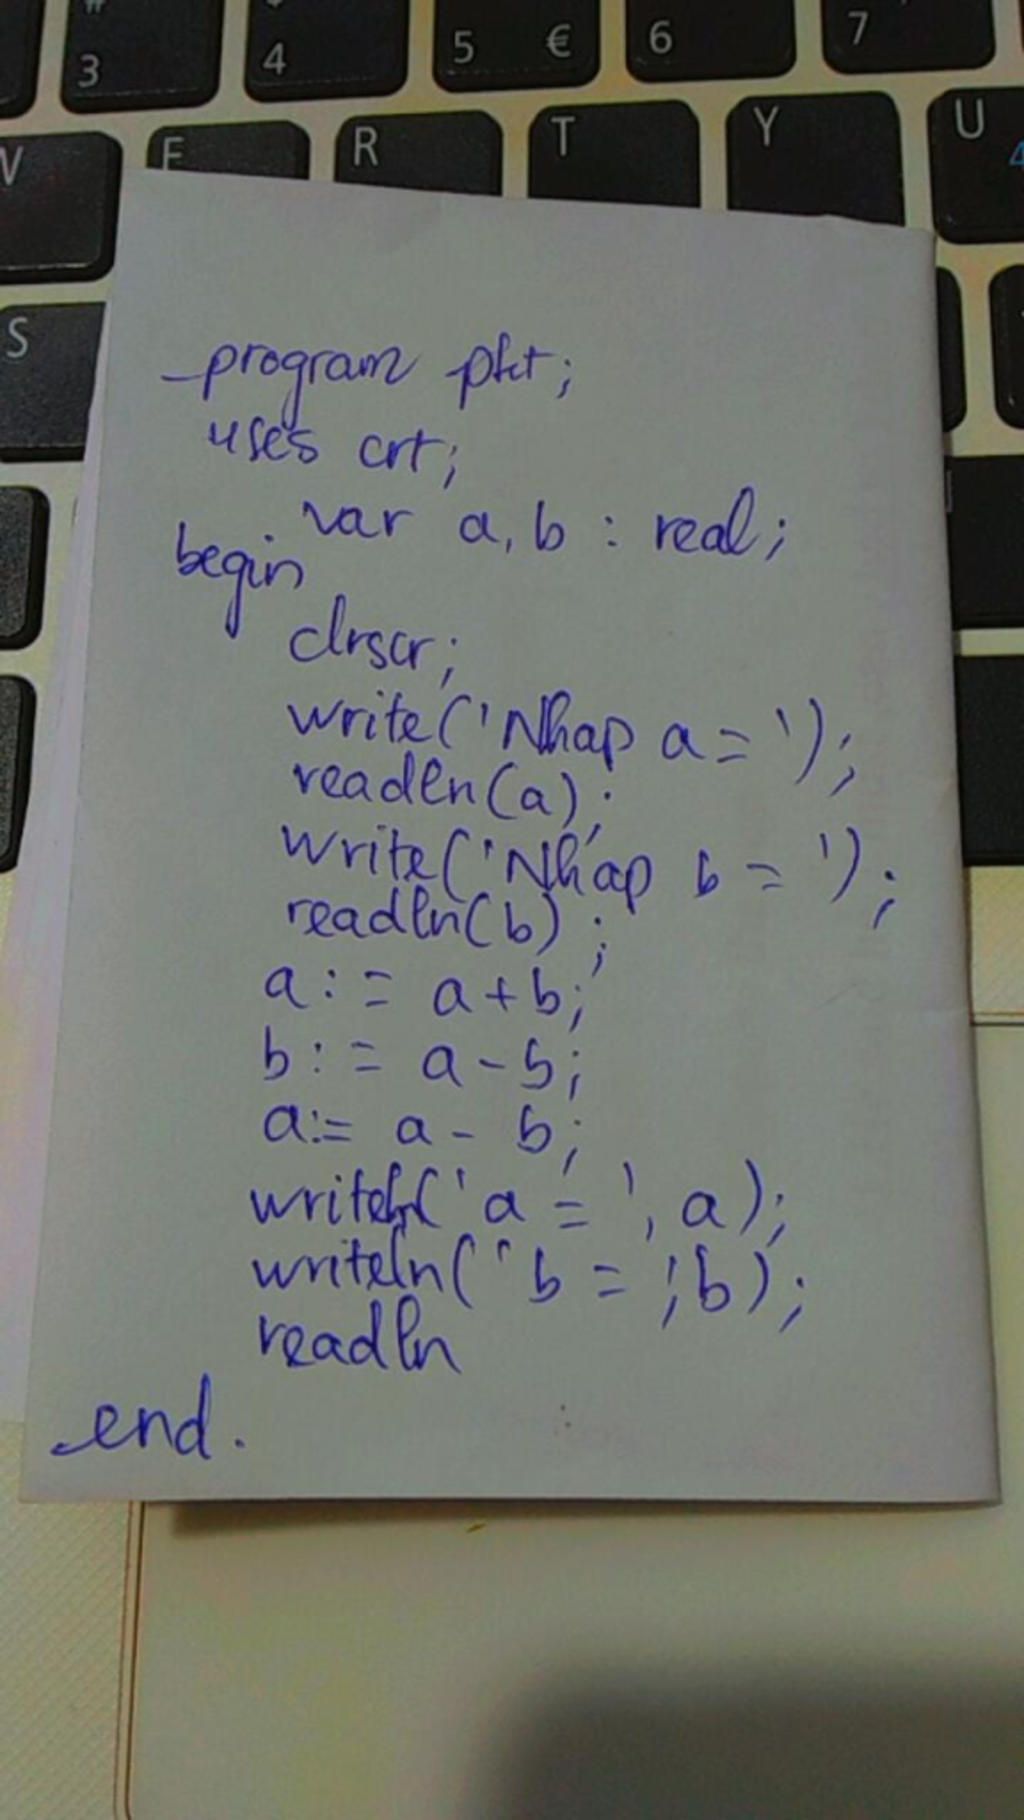 3
4
5 €
6
7
W
E
R
T
Y
U
4
S
program pkt;
uses crt;
var a, b : real;
begin
clrscr;
write('Nhap a = ');
readln(a);
write('Nhap b = ');
readln(b);
a := a + b;
b := a - b;
a := a - b;
writeln('a = ', a);
writeln('b = ;b);
readln
end.